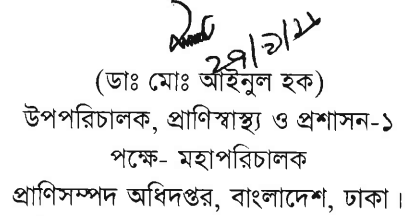 (ডাঃ মোঃ আইনুল হক)
উপপরিচালক, প্রাণিস্বাস্থ্য ও প্রশাসন-১
পক্ষে- মহাপরিচালক
প্রাণিসম্পদ অধিদপ্তর, বাংলাদেশ, ঢাকা।